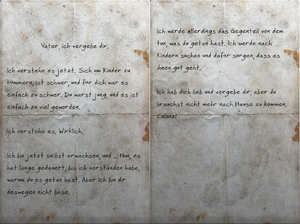 Vater, ich vergebe dir,
Ich verstehe es jetzt. Sich um Kinder zu
kümmern, ist schwer, und für dich war es
einfach zu schwer. Du warst jung, und es ist
einfach zu viel geworden.
Ich verstehe es. Wirklich.
Ich bin jetzt selbst erwachsen, und ... Nun, es
hat lange gedauert, bis ich verstanden habe,
warum du es getan hast. Aber ich bin dir
deswegen nicht böse.
Ich werde allerdings das Gegenteil von dem
tun, was du getan hast. Ich werde nach
Kindern suchen und dafür sorgen, dass es
ihnen gut geht.
Ich hab dich lieb und vergebe dir, aber du
brauchst nicht mehr nach Hause zu kommen.